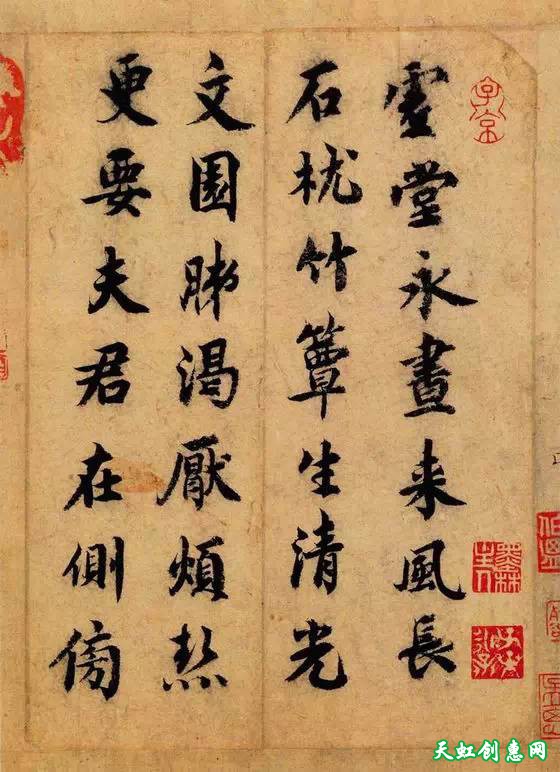 子京
虛堂永晝来風長
石枕竹簟生清光
文園肺渴厭煩愁
更要夫君在側傍
天虹创惠网